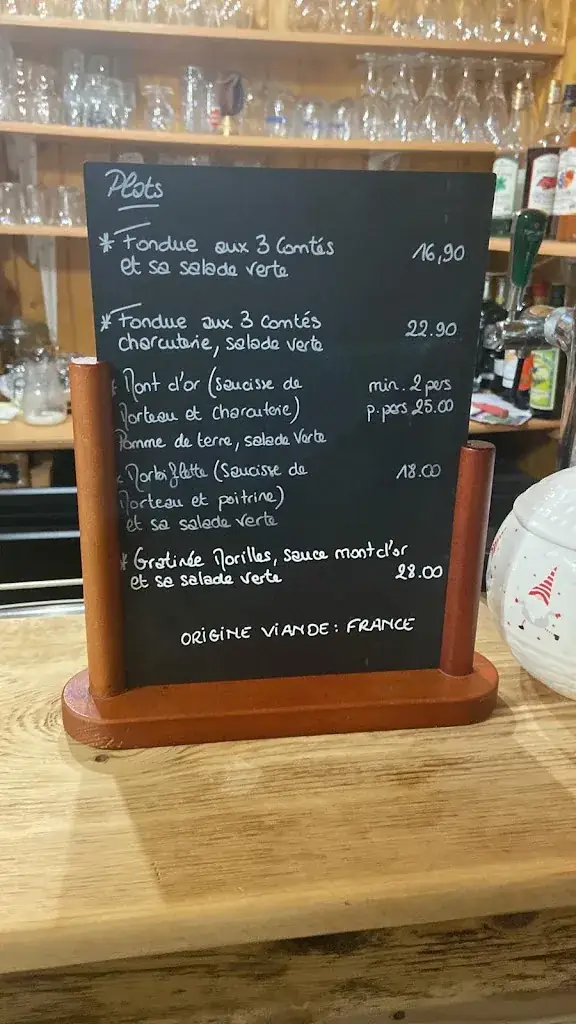 Plats
* Fondue aux 3 Comtés 16,90
et sa salade verte
* Fondue aux 3 Comtés 22.90
charcuterie, salade verte
* Mont d'or (saucisse de min. 2 pers
Morteau et charcuterie) p. pers 25.00
Pomme de terre, salade verte
* Morbiflette (saucisse de 18.00
Morteau et poitrine)
et sa salade verte
* Gratinée Morilles, sauce mont d'or
et sa salade verte 28.00
ORIGINE VIANDE : FRANCE